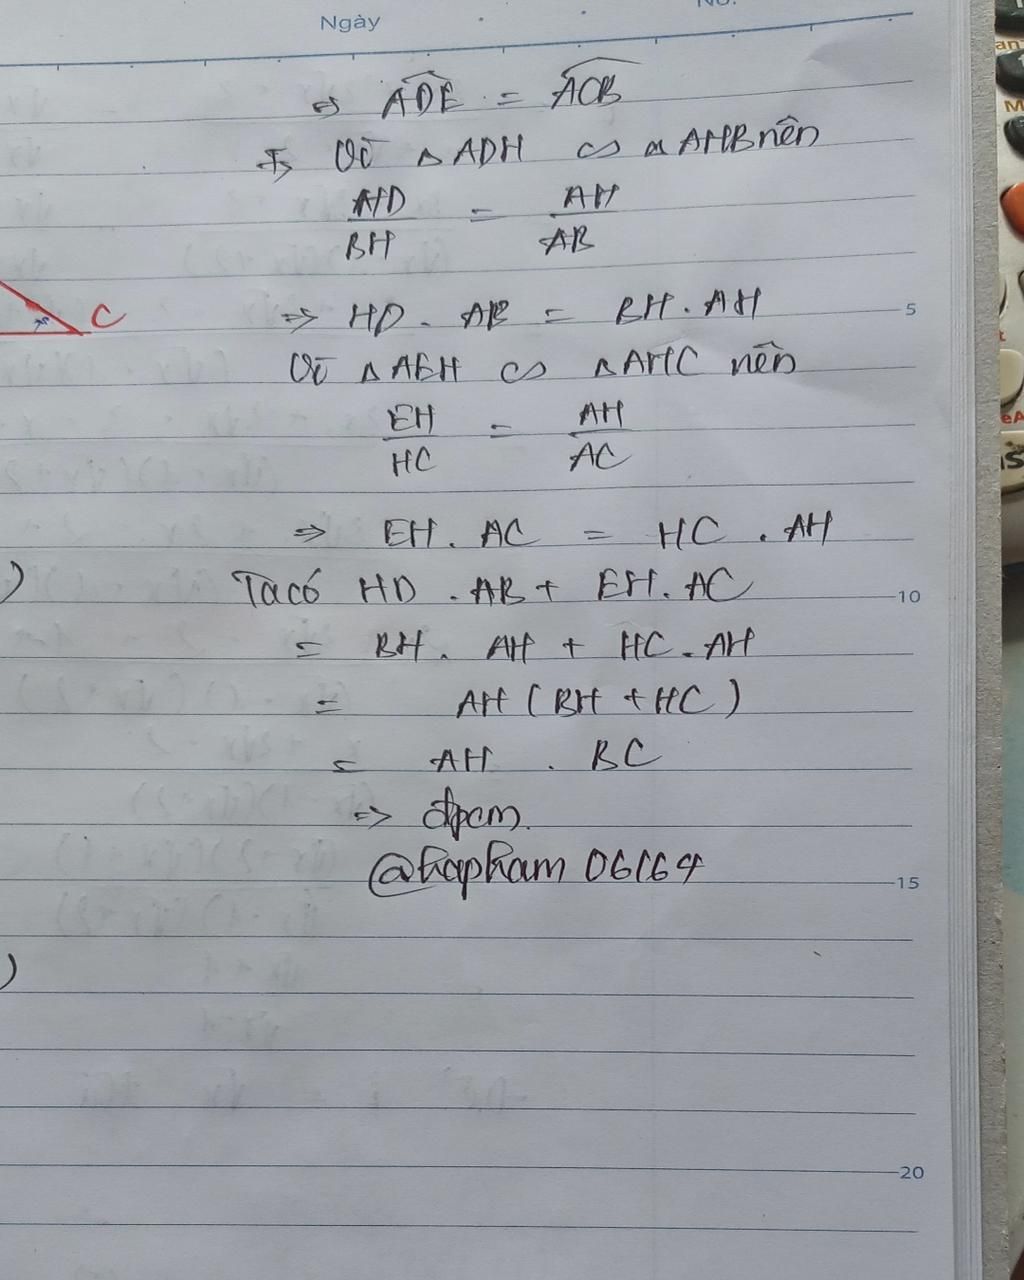 Ngày
No.
⇒ ADE = ACB
Vì △ADH ∽ △AHB nên
HD/BH = AH/AB
C
⇒ HD . AB = BH . AH
5
Vì △AEH ∽ △AHC nên
EH/HC = AH/AC
⇒ EH . AC = HC . AH
) Ta có HD . AB + EH . AC
10
= BH . AH + HC . AH
= AH ( BH + HC )
= AH . BC
⇒ đpcm.
@hapham 06164
15
)
20